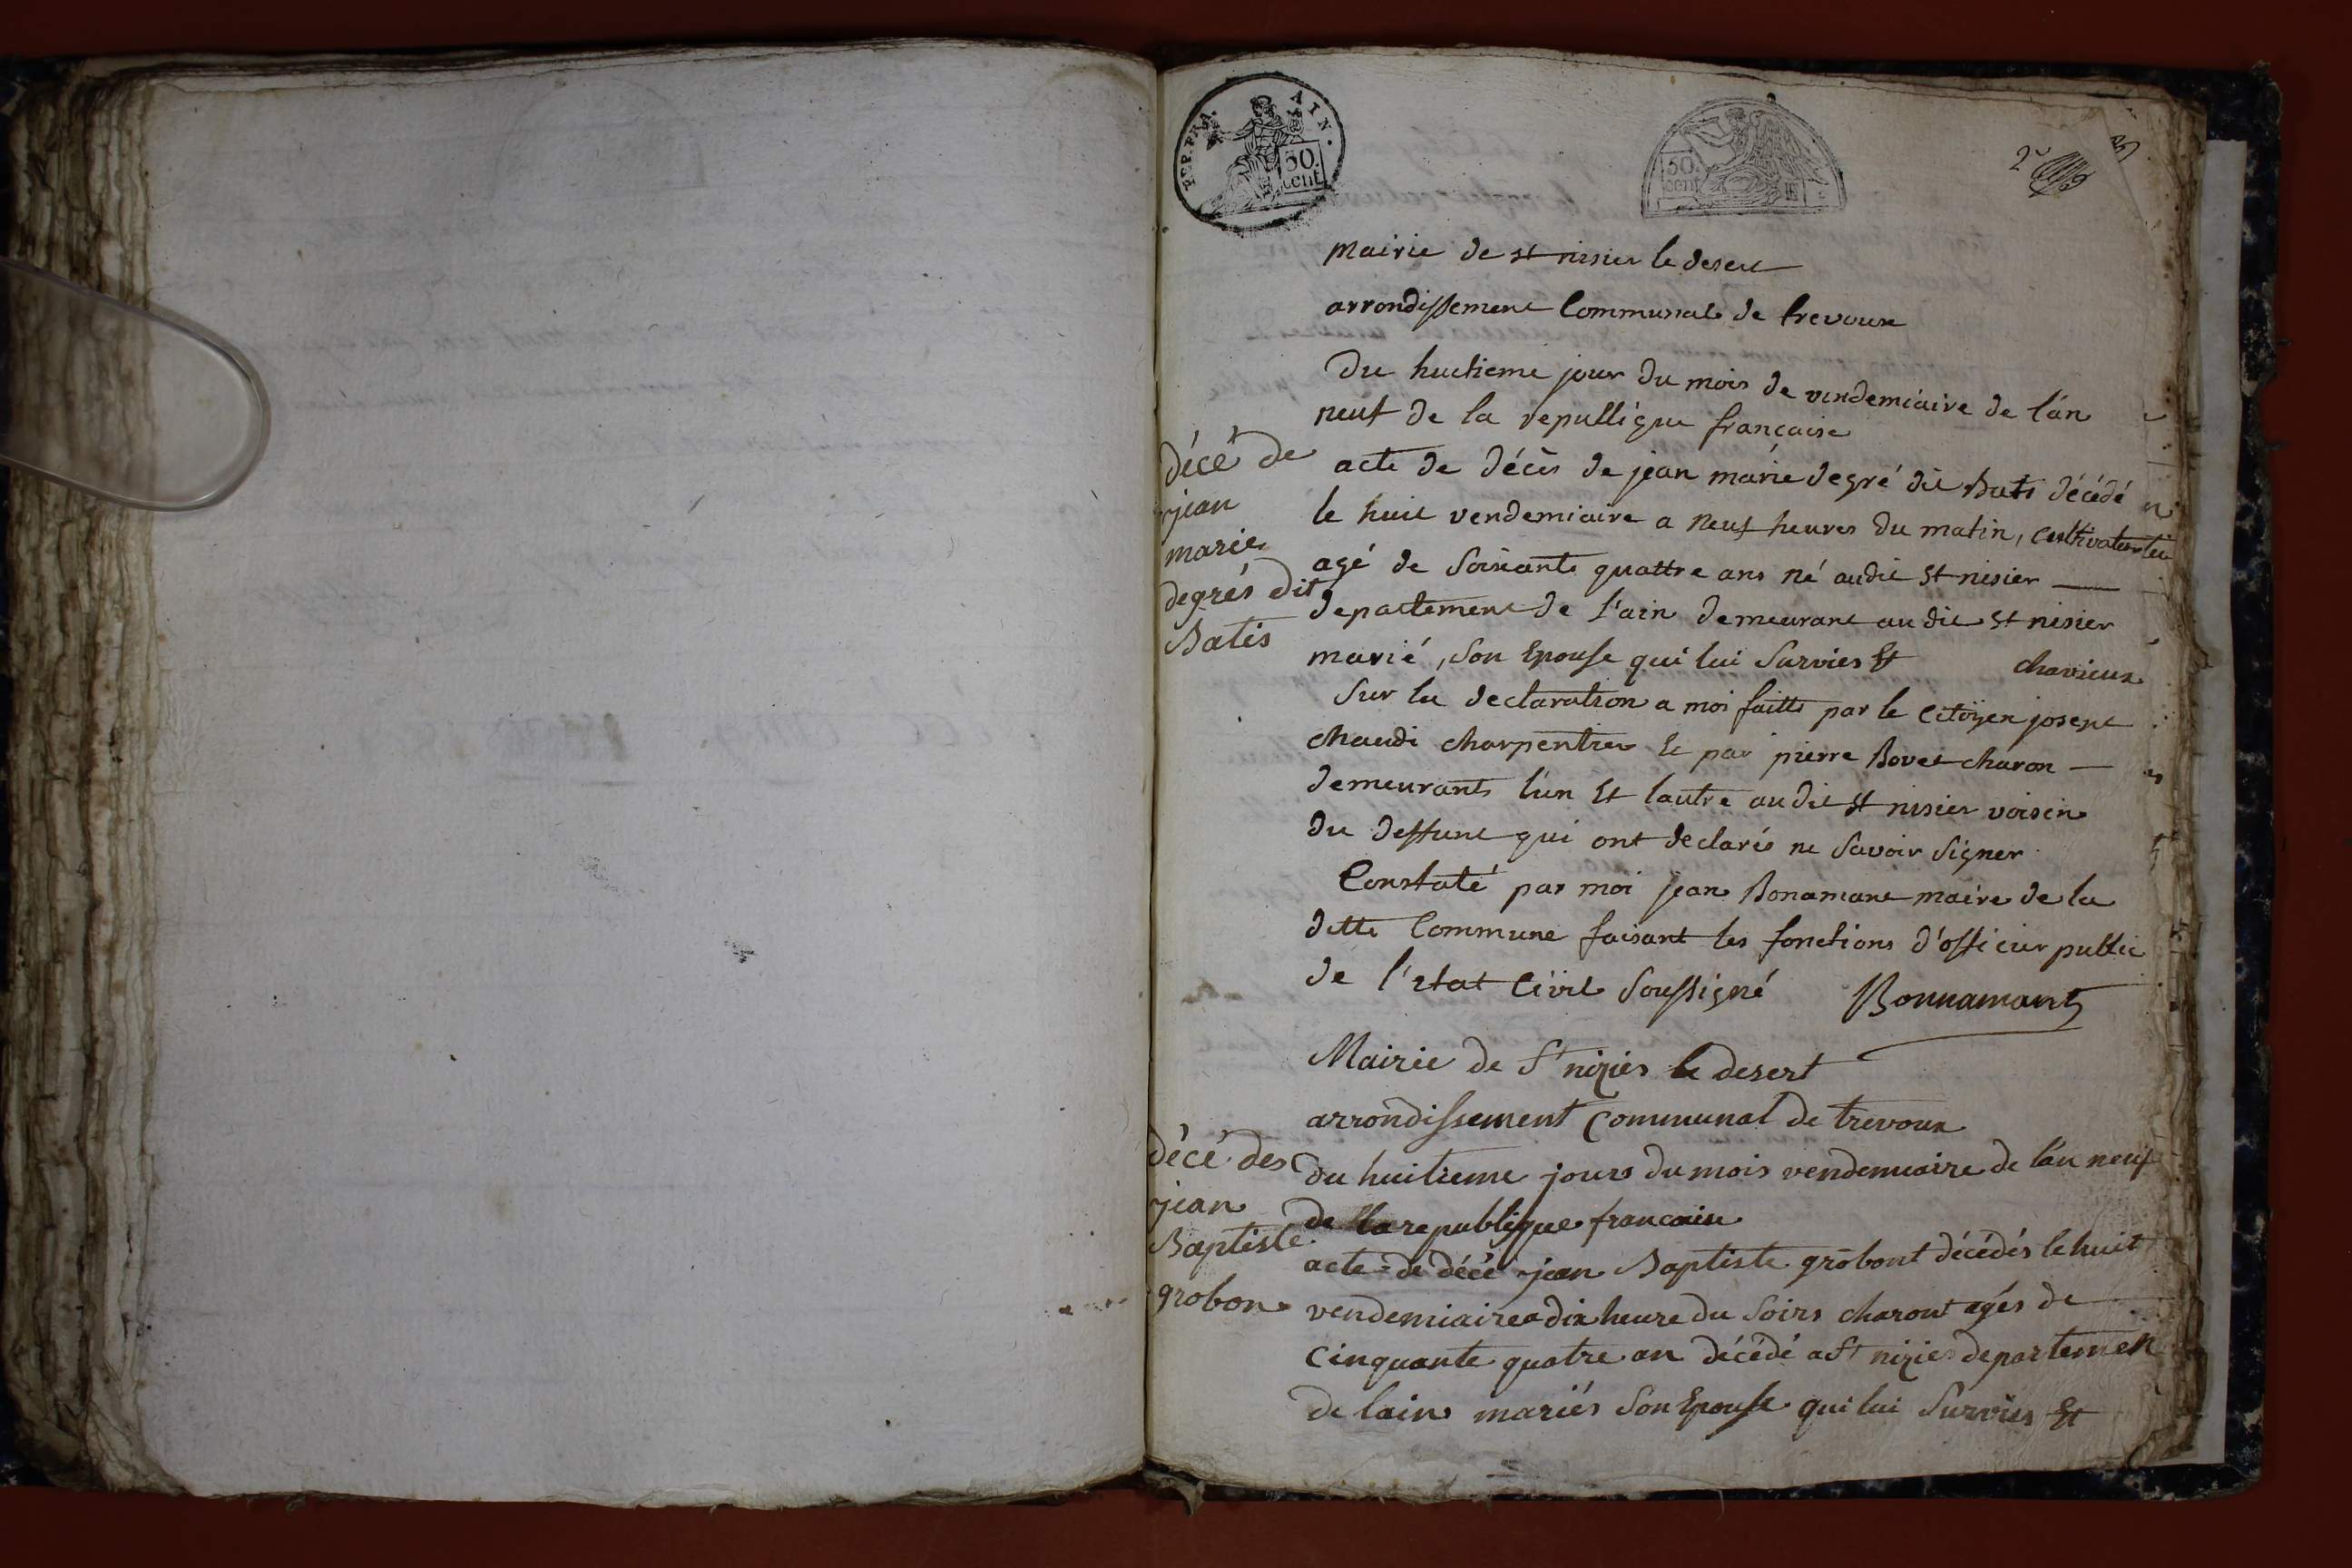 REP. FRA. AIN.
50. cent.
50. cent
2e
mairie de st nisier le desert
arrondissement Communal de trevoux
Du huctieme jour du mois de vendemiaire de l'an
neuf de la republique française
décé de
jean
marie
degrés dit
Batis
acte de décès de jean marie degré dit Batis décédé
le huit vendemiaire a neuf heures du matin, cultivateur
agé de Soixante quattre ans né audit st nisier
departement de l'ain demeurant au dit st nisier
marié, Son Epouse qui lui Survies Et chavieux
Sur la declaration a moi faitte par le Citöyen joseph
chaudi charpentier Et par pierre Bovet charon
demeurants l'un Et lautre au dit st nisier voisin
du deffunt qui ont declarés ne Savoir Signer
Constaté par moi jean Bonamant maire de la
ditte Commune faisant les fonctions d'officier public
de l'etat Civil Soussigné Bonnamant
Mairie de St nizier le desert
arrondissement Communal de trevoux
décé des
jean
Baptiste
grobon
du huitieme jours du mois vendemiaire de l'an neuf
de la republique francaise
acte de décé jean Baptiste grobont décédés le huit
vendemiaire a dix heure du Soirs charont agés de
Cinquante quatre an décédé a St nizier departemen
de lain mariés Son Epouse qui lui Survies Et